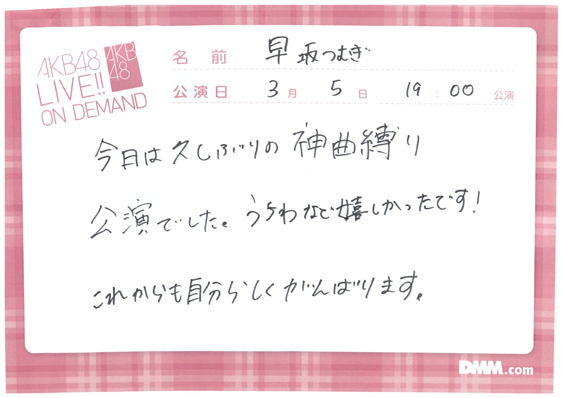 AKB48
LIVE!!
ON DEMAND
AKB
48
名前 早坂つむぎ
公演日 3月5日 19:00 公演
今日は久しぶりの神曲縛り
公演でした。うちわなど嬉しかったです!
これからも自分らしくがんばります。
DMM.com